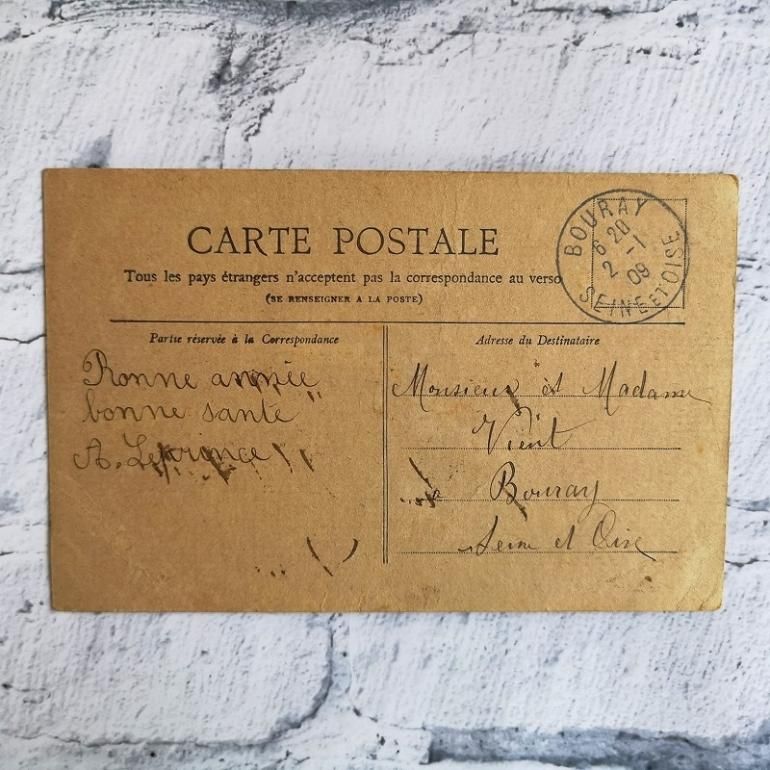 CARTE POSTALE
Tous les pays étrangers n'acceptent pas la correspondance au verso
(SE RENSEIGNER A LA POSTE)
BOURAY
6 20
2 -1
09
SEINE ET OISE
Partie réservée à la Correspondance
Bonne année
bonne santé
A. Leprince
Adresse du Destinataire
Monsieur et Madame
à Bouray
Seine et Oise